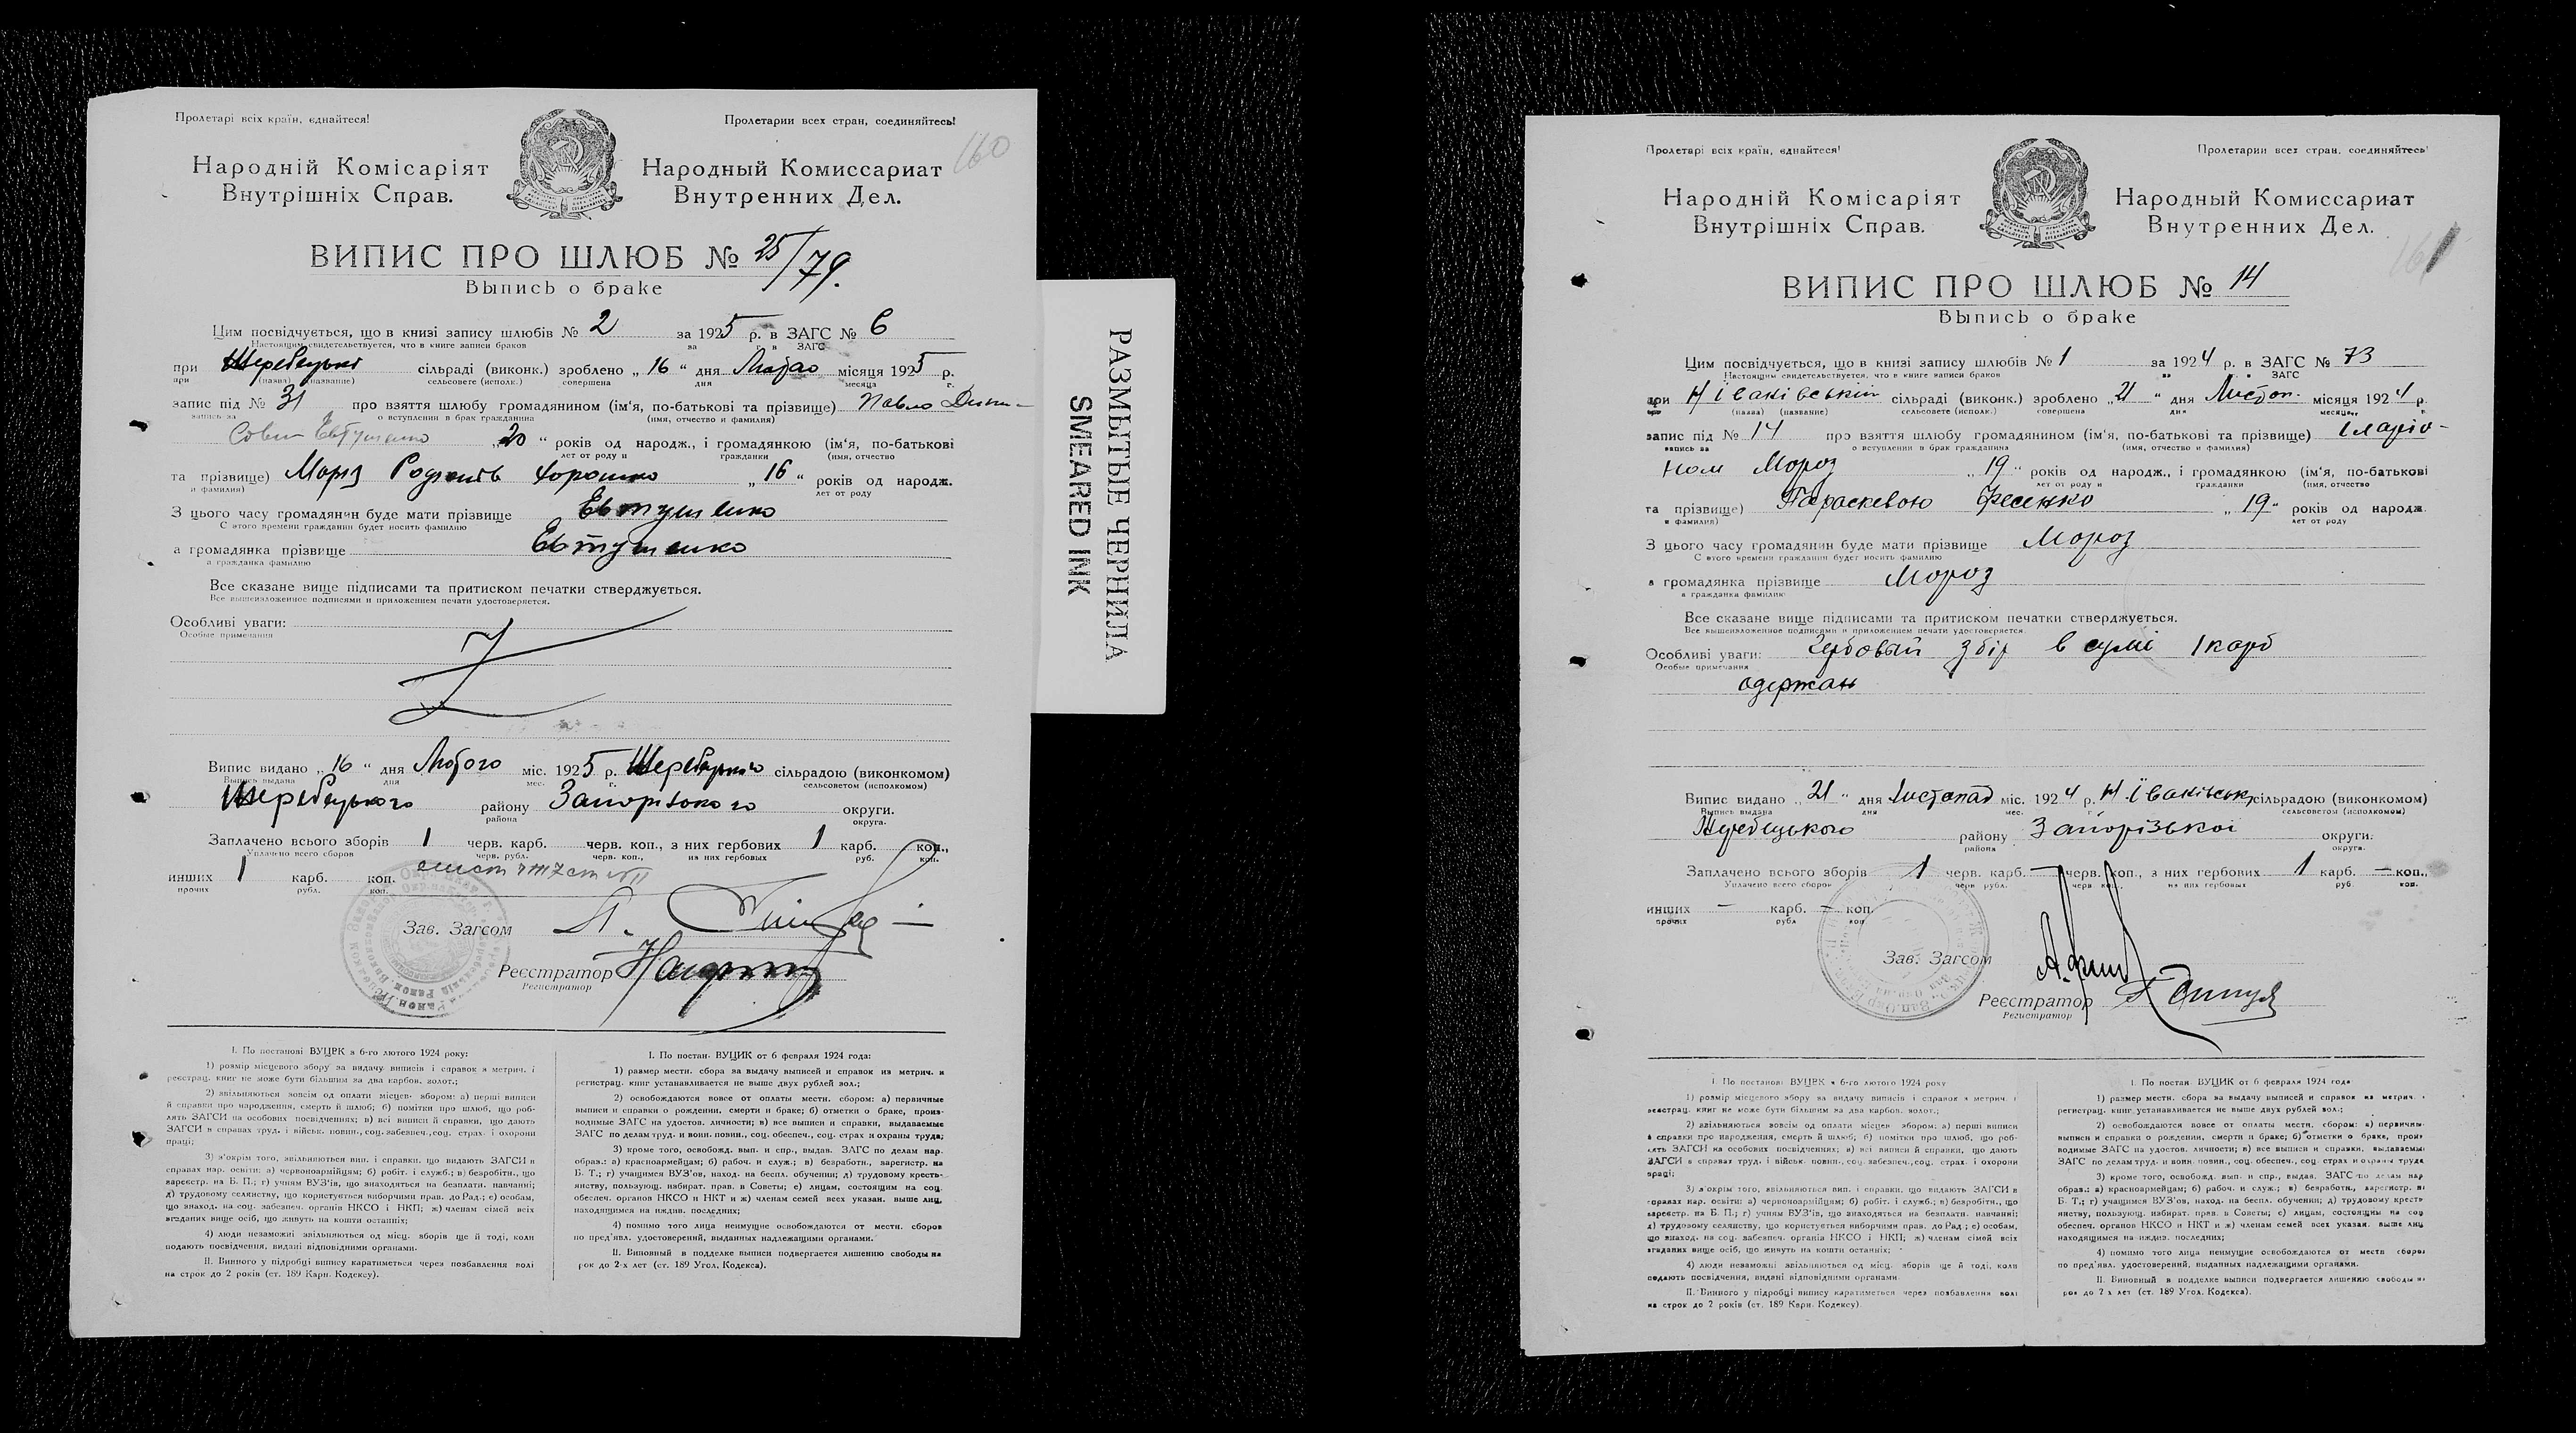 Пролетарі всіх країн, єднайтеся!
Пролетарии всех стран, соединяйтесь!
160
Народній Комісаріят
Внутрішніх Справ.
Народный Комиссариат
Внутренних Дел.
ВИПИС ПРО ШЛЮБ № 25/79.
Выпись о браке
Цим посвідчується, що в книзі запису шлюбів № 2 за 1925 р. в ЗАГС № 6
Настоящим свидетельствуется, что в книге записи браков за г. в ЗАГС
при сільраді (виконк.) зроблено „16“ дня місяця 1925 р.
при (назва) (название) сельсовете (исполк.) совершена дня месяца г.
запис під № 31 про взяття шлюбу громадянином (ім‘я, по-батькові та прізвище) Павло
запись за о вступлении в брак гражданина (имя, отчество и фамилия)
Евтушенко „20“ років од народж., і громадянкою (ім‘я, по-батькові
лет от роду и гражданки (имя, отчество
та прізвище) „16“ років од народж.
и фамилия) лет от роду
З цього часу громадянин буде мати прізвище Евтушенко
С этого времени гражданин будет носить фамилию
а громадянка прізвище Евтушенко
а гражданка фамилию
Все сказане вище підписами та притиском печатки стверджується.
Все вышеизложенное подписями и приложением печати удостоверяется.
Особливі уваги:
Особые примечания
Випис видано „16“ дня Лютого міс. 1925 р. сільрадою (виконкомом)
Выпись выдана дня мес. г. сельсоветом (исполкомом)
Жеребецького району Запорізького округи.
района округа.
Заплачено всього зборів 1 черв. карб. черв. коп., з них гербових 1 карб. коп.,
Уплачено всего сборов черв. рубл. черв. коп., из них гербовых руб. коп.
инших 1 карб. коп.
прочих рубл. коп.
Зав. Загсом
Реєстратор
Регистратор
І. По постанові ВУЦВК з 6-го лютого 1924 року:
1) розмір місцевого збору за видачу виписів і справок з метрич. і
реєстрац. книг не може бути більшим за два карбов. золот.;
2) звільняються зовсім од оплати місцев. збором: а) перші виписи
й справки про народження, смерть й шлюб; б) помітки про шлюб, що роб-
лять ЗАГСИ на особових посвідченнях; в) всі виписи й справки, що дають
ЗАГСИ в справах труд. і військ. повин., соц. забезпеч., соц. страх. і охорони
праці;
3) з‘окрім того, звільняються вип. і справки, що видають ЗАГСИ в
справах нар. освіти: а) червоноармійцям; б) робіт. і служб.; в) безробітн., що
зареєстр. на Б. П.; г) учням ВУЗ‘ів, що знаходяться на безплатн. навчанні;
д) трудовому селянству, що користується виборчими прав. до Рад.; е) особам,
що знаход. на соц. забезпеч. органів НКСО і НКП; ж) членам сімей всіх
згаданих вище осіб, що живуть на кошти останніх;
4) люди незаможні звільняються од місц. зборів ще й тоді, коли
подають посвідчення, видані відповідними органами.
ІІ. Винного у підробці випису каратиметься через позбавлення волі
на строк до 2 років (ст. 189 Карн. Кодексу).
I. По постан. ВУЦИК от 6 февраля 1924 года:
1) размер местн. сбора за выдачу выписей и справок из метрич. и
регистрац. книг устанавливается не выше двух рублей зол.;
2) освобождаются вовсе от оплаты местн. сбором: а) первичные
выписи и справки о рождении, смерти и браке; б) отметки о браке, произ-
водимые ЗАГС на удостов. личности; в) все выписи и справки, выдаваемые
ЗАГС по делам труд. и воин. повин., соц. обеспеч., соц. страх и охраны труда;
3) кроме того, освобожд. вып. и спр., выдав. ЗАГС по делам нар.
образ.: а) красноармейцам; б) рабоч. и служ.; в) безработн., зарегистр. на
Б. Т.; г) учащимся ВУЗ‘ов, наход. на беспл. обучении; д) трудовому кресть-
янству, пользующ. избират. прав. в Советы; е) лицам, состоящим на соц.
обеспеч. органов НКСО и НКТ и ж) членам семей всех указан. выше лиц,
находящимся на иждив. последних;
4) помимо того лица неимущие освобождаются от местн. сборов
по пред‘явл. удостоверений, выданных надлежащими органами.
II. Виновный в подделке выписи подвергается лишению свободы на
срок до 2-х лет (ст. 189 Угол. Кодекса).
РАЗМЫТЫЕ ЧЕРНИЛА
SMEARED INK
Пролетарі всіх країн, єднайтеся!
Пролетарии всех стран, соединяйтесь!
161
Народній Комісаріят
Внутрішніх Справ.
Народный Комиссариат
Внутренних Дел.
ВИПИС ПРО ШЛЮБ № 14
Выпись о браке
Цим посвідчується, що в книзі запису шлюбів № 1 за 1924 р. в ЗАГС № 73
Настоящим свидетельствуется, что в книге записи браков ЗАГС
при сільраді (виконк.) зроблено „21“ дня Листоп. місяця 1924 р.
(назва) (название) сельсовете (исполк.) совершена дня месяца
запис під № 14 про взяття шлюбу громадянином (ім‘я, по-батькові та прізвище) Іларіо-
запись за о вступлении в брак гражданина (имя, отчество и фамилия)
ном Мороз „19“ років од народж., і громадянкою (ім‘я, по-батькові
лет от роду и гражданки (имя, отчество
та прізвище) Параскевою Фесенко „19“ років од народж.
и фамилия) лет от роду
З цього часу громадянин буде мати прізвище Мороз
С этого времени гражданин будет носить фамилию
а громадянка прізвище Мороз
а гражданка фамилию
Все сказане вище підписами та притиском печатки стверджується.
Все вышеизложенное подписями и приложением печати удостоверяется.
Особливі уваги: Гербовый збір в сумі 1 карб
Особые примечания
одержан
Випис видано „21“ дня Листопад міс. 1924 р. сільрадою (виконкомом)
Выпись выдана дня мес. г. сельсоветом (исполкомом)
Жеребецького району Запорізькоі округи.
района округа.
Заплачено всього зборів 1 черв. карб. — черв. коп., з них гербових 1 карб. — коп.,
Уплачено всего сборов черв. рубл. черв. коп., из них гербовых руб. коп.
инших — карб. — коп.
прочих рубл. коп.
Зав. Загсом
Реєстратор
Регистратор
І. По постанові ВУЦВК з 6-го лютого 1924 року
1) розмір місцевого збору за видачу виписів і справок з метрич. і
реєстрац. книг не може бути більшим за два карбов. золот.;
2) звільняються зовсім од оплати місцев. збором: а) перші виписи
й справки про народження, смерть й шлюб; б) помітки про шлюб, що роб-
лять ЗАГСИ на особових посвідченнях; в) всі виписи й справки, що дають
ЗАГСИ в справах труд. і військ. повин., соц. забезпеч., соц. страх. і охорони
праці;
3) з‘окрім того, звільняються вип. і справки, що видають ЗАГСИ в
справах нар. освіти: а) червоноармійцям; б) робіт. і служб.; в) безробітн., що
зареєстр. на Б. П.; г) учням ВУЗ‘ів, що знаходяться на безплатн. навчанні;
д) трудовому селянству, що користується виборчими прав. до Рад.; е) особам,
що знаход. на соц. забезпеч. органів НКСО і НКП; ж) членам сімей всіх
згаданих вище осіб, що живуть на кошти останніх;
4) люди незаможні звільняються од місц. зборів ще й тоді, коли
подають посвідчення, видані відповідними органами.
ІІ. Винного у підробці випису каратиметься через позбавлення волі
на строк до 2 років (ст. 189 Карн. Кодексу).
I. По постан. ВУЦИК от 6 февраля 1924 года
1) размер местн. сбора за выдачу выписей и справок из метрич. и
регистрац. книг устанавливается не выше двух рублей зол.;
2) освобождаются вовсе от оплаты местн. сбором: а) первичны-
выписи и справки о рождении, смерти и браке; б) отметки о браке, произ-
водимые ЗАГС на удостов. личности; в) все выписи и справки, выдаваемы-
ЗАГС по делам труд. и воин. повин., соц. обеспеч., соц. страх и охраны труда
3) кроме того, освобожд. вып. и спр., выдав. ЗАГС по делам нар.
образ.: а) красноармейцам; б) рабоч. и служ.; в) безработн., зарегистр. на
Б. Т.; г) учащимся ВУЗ‘ов, наход. на беспл. обучении; д) трудовому кресть-
янству, пользующ. избират. прав. в Советы; е) лицам, состоящим на соц
обеспеч. органов НКСО и НКТ и ж) членам семей всех указан. выше лиц
находящимся на иждив. последних;
4) помимо того лица неимущие освобождаются от местн сборов
по пред‘явл. удостоверений, выданных надлежащими органами.
II. Виновный в подделке выписи подвергается лишению свободы на
срок до 2 х лет (ст. 189 Угол. Кодекса).